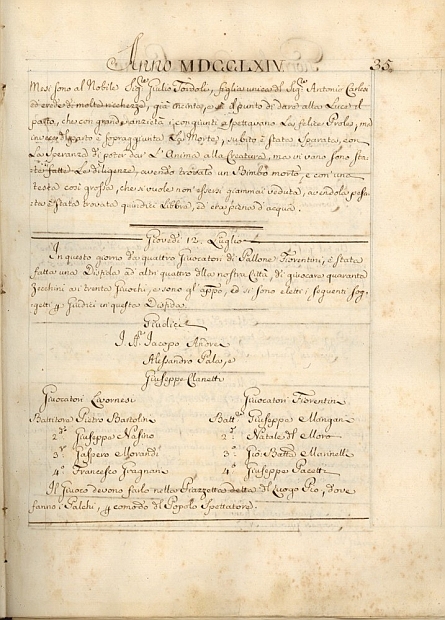 Anno MDCCLXIV. 35
Mesi sono al Nobile Sig.e Giulio Tordoli, figlia unica del Sig.e Antonio Carlesi
ed erede di molte ricchezze, già incinta, e al punto di dare alla Luce il
parto, che con grand'ansietà i congiunti aspettavano La felice Prole, ma
in vece di parto è sopraggiunta La Morte, subito è stata Sparata, con
La Speranza di poter dar L'Anima alla Creatura, ma vi vano sono sta-
te fatte Le diligenze, avendo trovato un Bimbo morto, e con una
testa così grossa, che si vuole non essersi giammai veduta, avendola pesa-
ta è stata trovata quindici Libbre, ed era piena d'acqua.
Giovedì 12. Luglio
In questo giorno da quattro Giuocatori di Pallone Fiorentini, è stata
fatta una Disfida ad altri quattro della nostra Città, di giuocare quaranta
Zecchini a i trenta Giuochi, e sono gl' appo, ed si sono eletti i seguenti Sog-
getti p Giudici in questa Disfida.
Giudici
I. Sig.i Jacopo
Alessandro Pala, e
Giuseppe
Giuocatori Livornesi Giuocatori Fiorentini
Battitore Pietro Bartolini Batt.re Giuseppe Mongani
2.o Giuseppe Nassino 2.o Natale del Moro
3.o Gaspero Morandi 3.o Gio: Batta Mannelli
4.o Francesco Fragnani 4.o Giuseppe Pacetti
Il Giuoco devono farlo nella Piazzetta detta del Luogo Pio, dove
fanno i Palchi, p comodo di Popolo Spettatore.